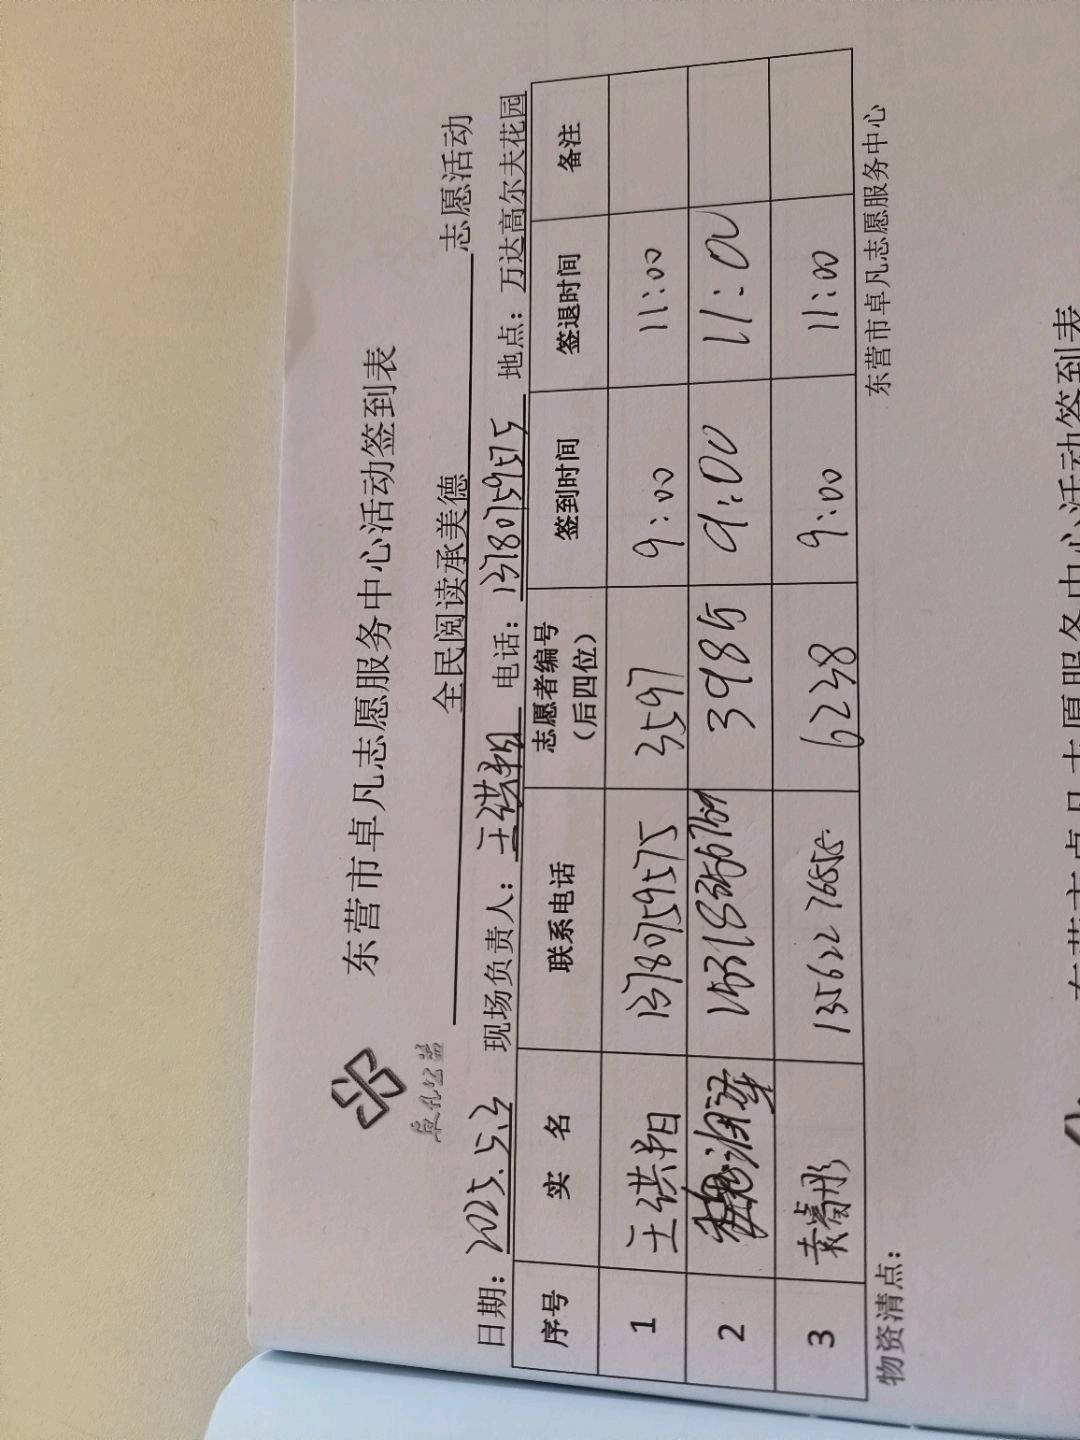 东营市卓凡志愿服务中心活动签到表
卓凡公益
全民阅读承美德 志愿活动
日期：2025.5.3 现场负责人：王洪翔 电话：13780759575 地点：万达高尔夫花园
序号 实 名 联系电话 志愿者编号（后四位） 签到时间 签退时间 备注
1 王洪翔 13780759575 3597 9:00 11:00
2 3985 9:00 11:00
3 13562276855 6238 9:00 11:00
物资清点： 东营市卓凡志愿服务中心
东营市卓凡志愿服务中心活动签到表